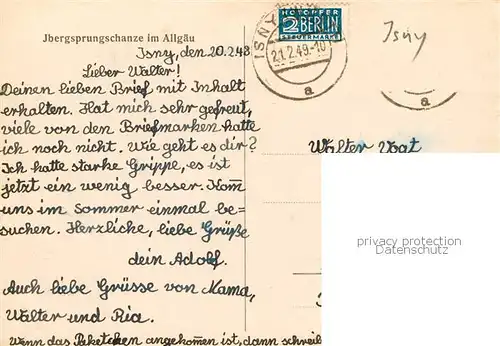 Jbergsprungschanze im Allgäu
Isny, den 20.2.48
Lieber Walter!
Deinen lieben Brief mit Inhalt
erhalten. Hat mich sehr gefreut,
viele von den Briefmarken hatte
ich noch nicht. Wie geht es dir?
Ich hatte starke Grippe, es ist
jetzt ein wenig besser. Kom̅
uns im Sommer einmal be-
suchen. Herzliche, liebe Grüße
dein Adolf.
Auch liebe Grüsse von Mama,
Walter und Ria.
Wenn das Paketchen angekom̅en ist, dann schreib
NOTOPFER
2 BERLIN
STEUERMARKE
ISNY
21.2.49.-10
a
Isny
a
Walter Vogt
privacy protection
Datenschutz